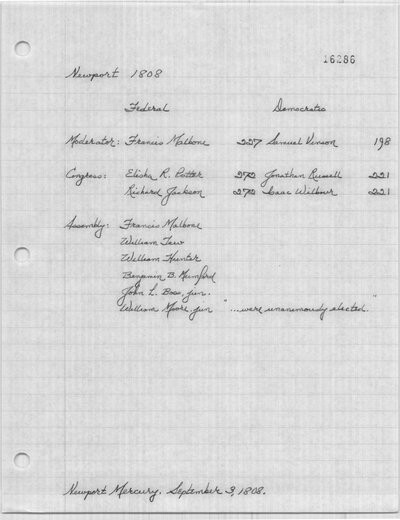 16286
Newport 1808
Federal Democratic
Moderator: Francis Malbone 227 Samuel Vinson 198
Congress: Elisha R. Potter 272 Jonathan Russell 221
Richard Jackson 272 Isaac Wilbour 221
Assembly: Francis Malbone
William Taw
William Hunter
Benjamin B. Mumford
John L. Boss, jun.
William Moore, jun "...were unanimously elected."
Newport Mercury. September 3, 1808.